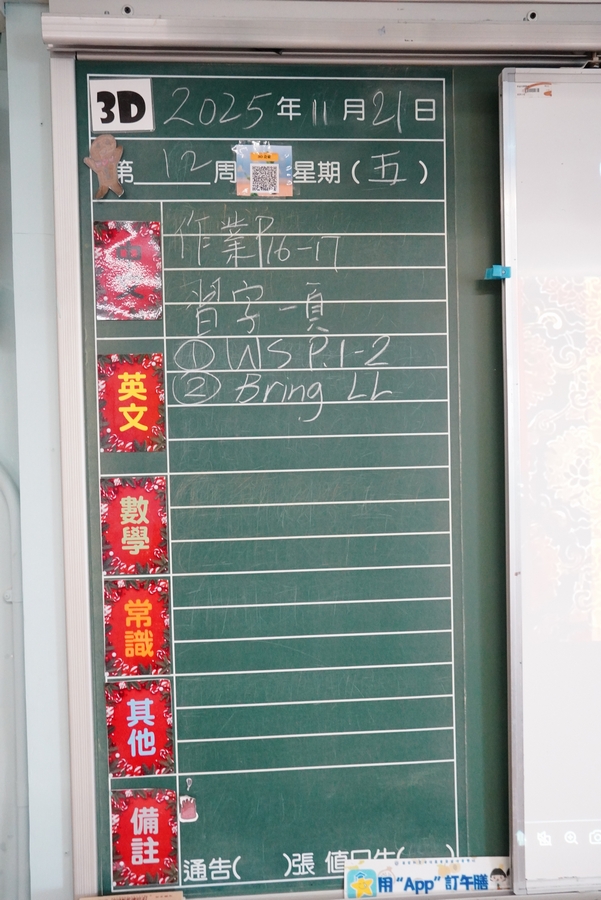 3D 2025年11月21日
第12周 星期(五)
中文
作業P.16-17
習字一頁
英文
① WS P.1-2
② Bring LL
數學
常識
其他
備註
通告( )張 值日生( )
用“App”訂午膳